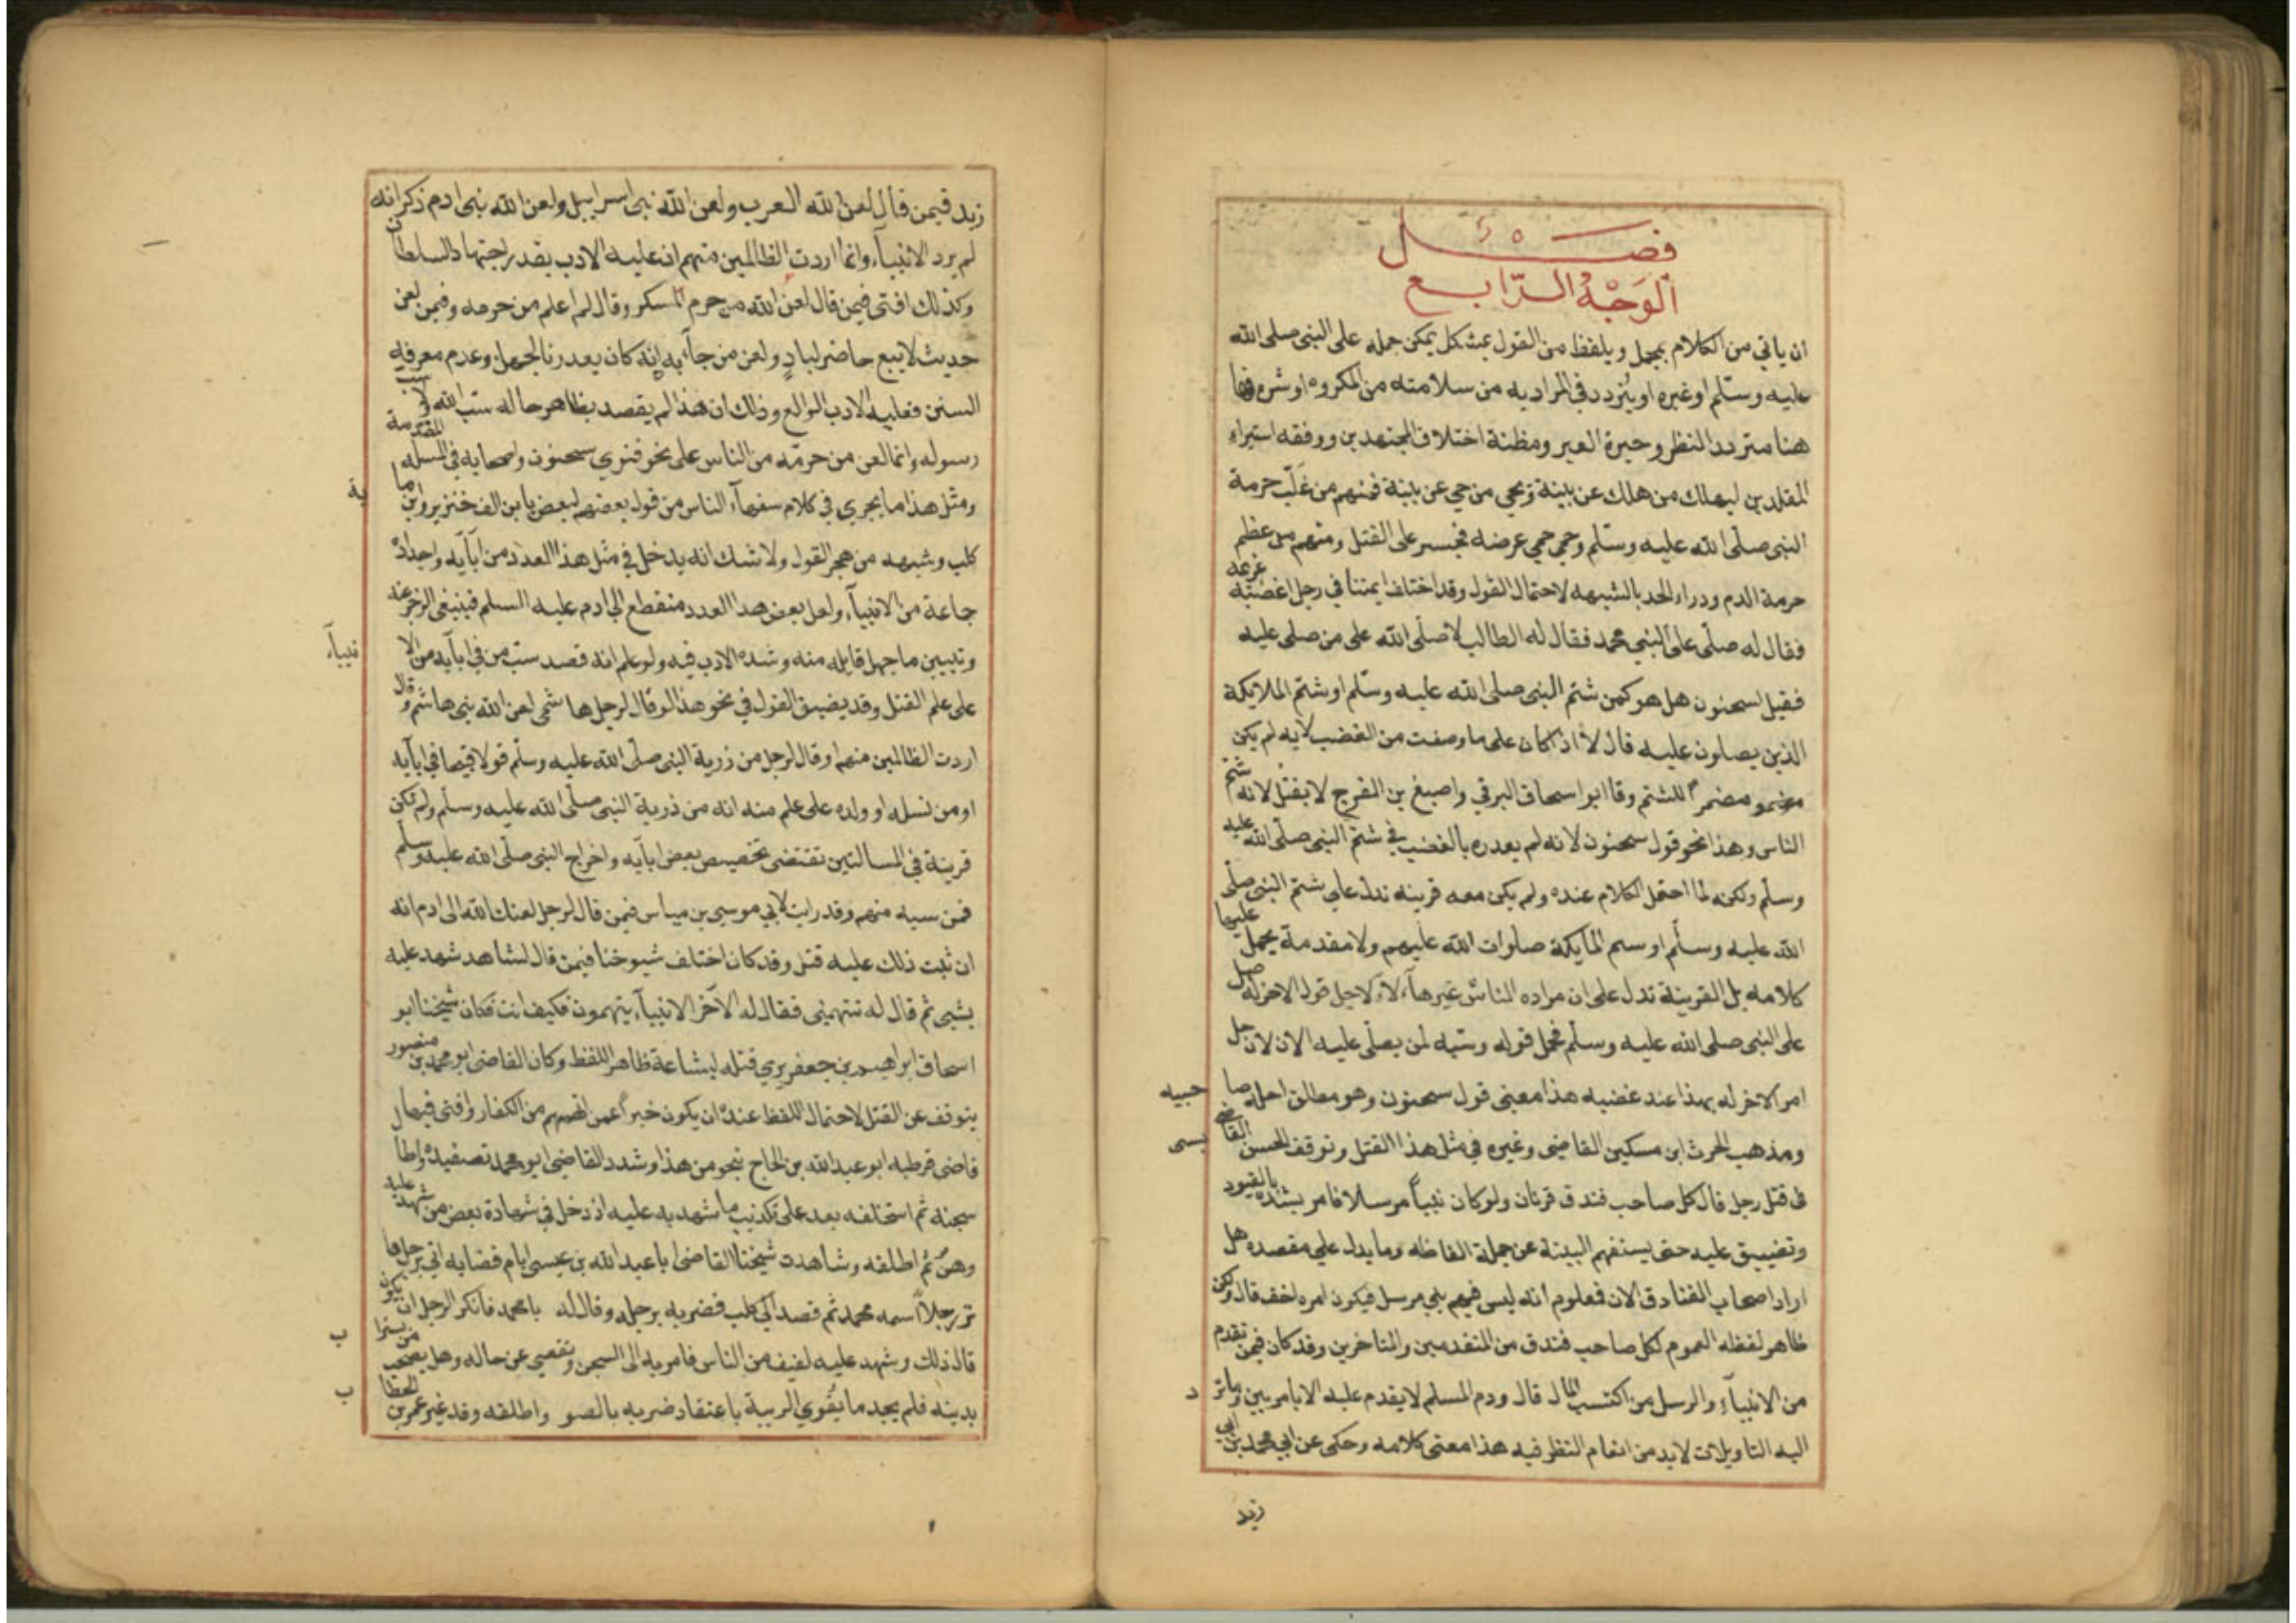 فصل
الوجه الرابع
ان ياتي من الكلام بمجمل ويلفظ من القول بمشكل يمكن حمله على النبي صلى الله
عليه وسلم او غيره او يتردد في المراد به من سلامته من المكروه او شره فها
هنا متردد النظر وحيرة العبر ومظنة اختلاف المجتهدين ووقفه استبراء
المقلدين ليهلك من هلك عن بينة ويحي من حي عن بينة فمنهم من غلب حرمة
النبي صلى الله عليه وسلم وحمي حمي عرضه فجسر على القتل ومنهم من عظم
حرمة الدم ودراء الحد بالشبهه لاحتمال القول وقد اختلف ايمتنا في رجل اغضبه غريمه
فقال له صلى على النبي محمد فقال له الطالب لا صلى الله على من صلى عليه
فقيل لسحنون هل هو كمن شتم النبي صلى الله عليه وسلم او شتم الملايكة
الذين يصلون عليه قال لا اذا كان على ما وصفت من الغضب لانه لم يكن
مضمر للشتم وقا ابو اسحاق البرقي واصبغ بن الفرج لا يقتل لانه شتم
الناس وهذا نحو قول سحنون لانه لم يعذره بالغضب في شتم النبي صلى الله عليه
وسلم ولكنه لما احتمل الكلام عنده ولم يكن معه قرينه تدل على شتم النبي صلى
الله عليه وسلم او شتم الملايكة صلوات الله عليهم ولا مقدمة يحمل عليها
كلامه بل القرينة تدل على ان مراده الناس غير هاء لاء لاجل قول الاخر له صل
على النبي صلى الله عليه وسلم فحمل قوله وسبه لمن يصلي عليه الان لاجل
امر الاخر له بهذا عند غضبه هذا معنى قول سحنون وهو مطابق لعلة صا
حبيه
ومذهب الحرث ابن مسكين القاضي وغيره في مثل هذا القتل وتوقف الحسن القا
بسى
في قتل رجل قال كل صاحب فندق قرنان ولو كان نبيا مرسلا فامر بشده بالقيود
وتضييق عليه حتى يستفهم البينة عن جملة الفاظه وما يدل على مقصده هل
اراد اصحاب الفنادق الان فمعلوم انه ليس فيهم نبي مرسل فيكون امره اخف قال ولكن
ظاهر لفظه العموم لكل صاحب فندق من المتقدمين والمتاخرين وقد كان فيمن تقدم
من الانبياء والرسل من اكتسب المال قال ودم المسلم لا يقدم عليه الا بامر بين وما تر
د
اليه التاويلات لا بد من انعام النظر فيه هذا معنى كلامه وحكي عن ابي محمد بن ابي
زيد
زيد فيمن قال لعن الله العرب ولعن الله بني اسراييل ولعن الله بني ادم ذكر انه
لم يرد الانبياء وانما اردت الظالمين منهم ان عليه الادب بقدر اجتهاد السلطان
وكذلك افتى فيمن قال لعن الله من حرم المسكر وقال لم اعلم من حرمه وفيمن لعن
حديث لا يبع حاضر لباد ولعن من جاء به انه كان يعذر بالجهل وعدم معرفه
السنن فعليه الادب الوالع وذلك ان هذا لم يقصد بظاهر حاله سب الله ولا سب
رسوله وانما لعن من حرمه من الناس على نحو فتوي سحنون واصحابه في المسله المقدمة
ومثل هذا ما يجري في كلام سفهاء الناس من قول بعضهم لبعض يا ابن الف خنزير وابن ما
ية
كلب وشبهه من هجر القول ولا شك انه يدخل في مثل هذا العدد من آبآيه واجداده
جماعة من الانبياء ولعل بعض هذا العدد منقطع الى ادم عليه السلم فينبغي الزجر عنه
وتبيين ما جهل قايله منه وشده الادب فيه ولو علم انه قصد سب من في ابآيه من الا
نبيآء
على علم لقتل وقد يضيق القول في نحو هذا لو قال لرجل هاشمي لعن الله بني هاشم وقال
اردت الظالمين منهم او قال لرجل من ذرية النبي صلى الله عليه وسلم قولا قبيحا في ابآيه
او من نسله او ولده على علم منه انه من ذرية النبي صلى الله عليه وسلم ولم تكن
قرينة في المسالتين تقتضى تخصيص بعض ابآيه واخراج النبي صلى الله عليه وسلم
فمن سبه منهم وقد رايت لابي موسي بن مياس فيمن قال لرجل لعنك الله الى ادم انه
ان ثبت ذلك عليه قتل وقد كان اختلف شيوخنا فيمن قال لشاهد شهد عليه
بشيى ثم قال له تتهمني فقال له الاخر الانبياء يتهمون فكيف انت فكان شيخنا ابو
اسحاق ابراهيم بن جعفر يري قتله لبشاعة ظاهر اللفظ وكان القاضي ابو محمد بن منصور
يتوقف عن القتل لاحتمال اللفظ عنده ان يكون خبرا عمن اتهمهم من الكفار وافتى فيها
قاضي قرطبه ابو عبد الله بن الحاج بنحو من هذا وشدد القاضي ابو محمد تصفيده واطا
سجنه ثم استحلفه بعد على تكذيب ما شهد به عليه اذ دخل في شهادة بعض من شهد عليه
وهن ثم اطلقه وشاهدت شيخنا القاضي ابا عبد الله بن عيسى ايام قضايه اتي برجل ها
تر رجلا اسمه محمد ثم قصد الى كلب فضربه برجله وقال له يا محمد فانكر الرجل ان يكون
قال ذلك وشهد عليه لفيف من الناس فامر به الى السجن وتقصي عن حاله وهل يصحب من يسترا
ب
بدينه فلم يجد ما يقوي الريبة باعتقاد ضربه بالسو واطلقه وقد غير عمر بن الخطا
ب